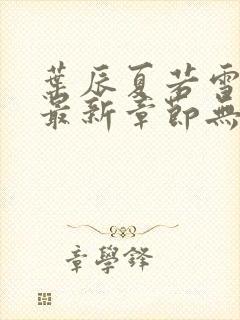 葉辰夏若雪
最新章節無
章學鋒